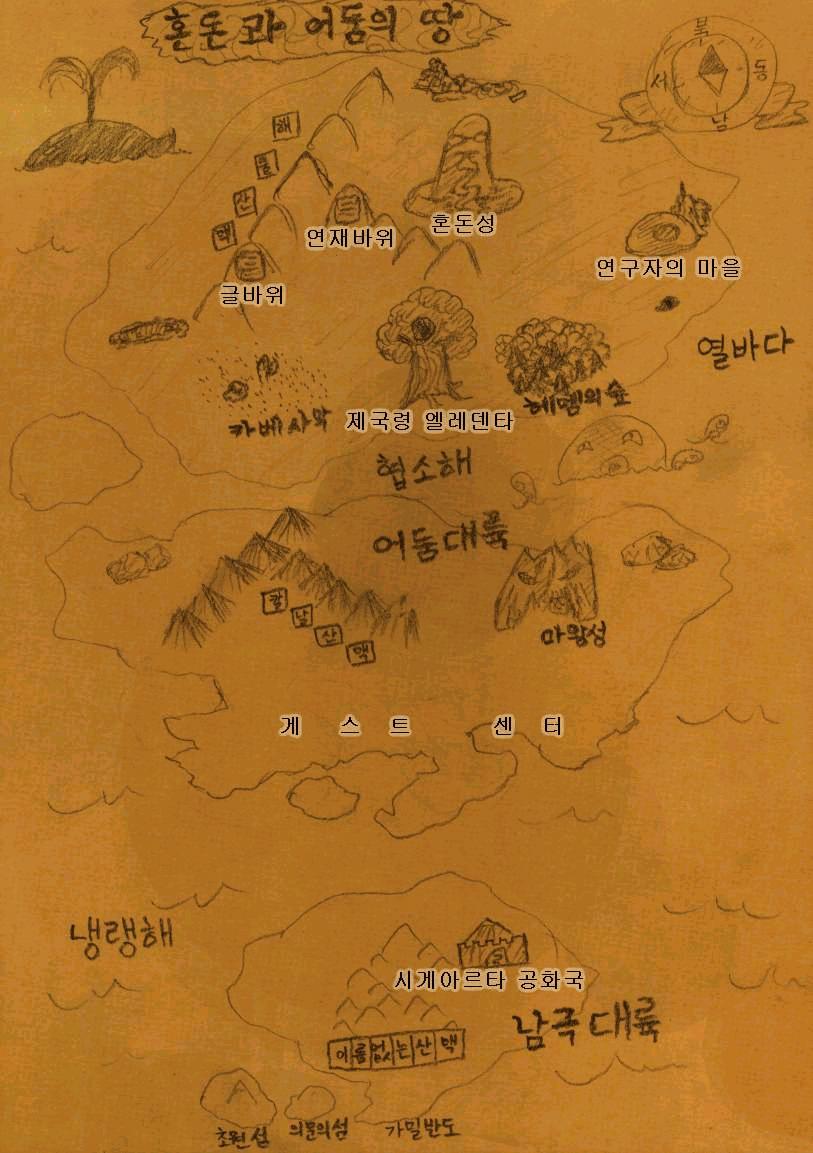 혼돈과 어둠의 땅
북
서
동
남
해
물
산
맥
연재바위
혼돈성
글바위
연구자의 마을
열바다
카베사막
제국령 엘레덴타
헤뎀의 숲
협소해
어둠대륙
칼
날
산
맥
마왕성
게 스 트 센 터
냉랭해
시게아르타 공화국
남극대륙
이름없는산맥
초원섬
의문의섬
가밀반도